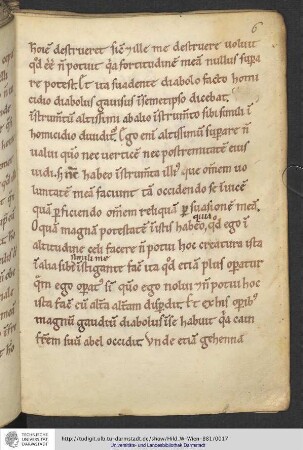 6
hoiem destrueret sic & ille me destruere voluit
qd & n potuit qa fortitudine mea nullus supa
re potest. It ita suadente diabolo facto homi
cidio diabolus gauisus i semetipso dicebat.
altissimi ab alio sibi simili
homicidio Ergo eni altissimu supare n
ualui quo nec uertice nec postremitate eius
uidi. S; nc habeo illi que omem uo
luntate mea faciunt ta occidendo se iuice
qua pficiendo omem reliqua psuasione mea.
O qua magna potestate i istis habeo, qd ego i
quia
altitudine celi facere n potui hoc creatura ista
simili me
i alia sibi istigante fac ita qd etia plus opatur
qm ego opat su quo ego nolui n potui hoc
ista fac cu alta alta dispdit Et ex his opib
magnu gaudiu diabolus i se habuit qa cain
frem suu abel occidit Vnde etia gehenna
TECHNISCHE
UNIVERSITÄT
DARMSTADT
http://tudigit.ulb.tu-darmstadt.de/show/Hild_W-Wien-881/0017
Universitäts- und Landesbibliothek Darmstadt